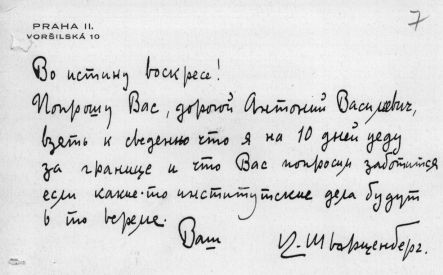 7
PRAHA II.
VORŠILSKÁ 10
Во истину воскресе!
Попрошу Вас, дорогой Антоний Васильевич,
взять к сведению что я на 10 дней уеду
за границе и что Вас попросил заботится
если какие-то институтские дела будут
в то вереме.
Ваш К. Шварценберг.